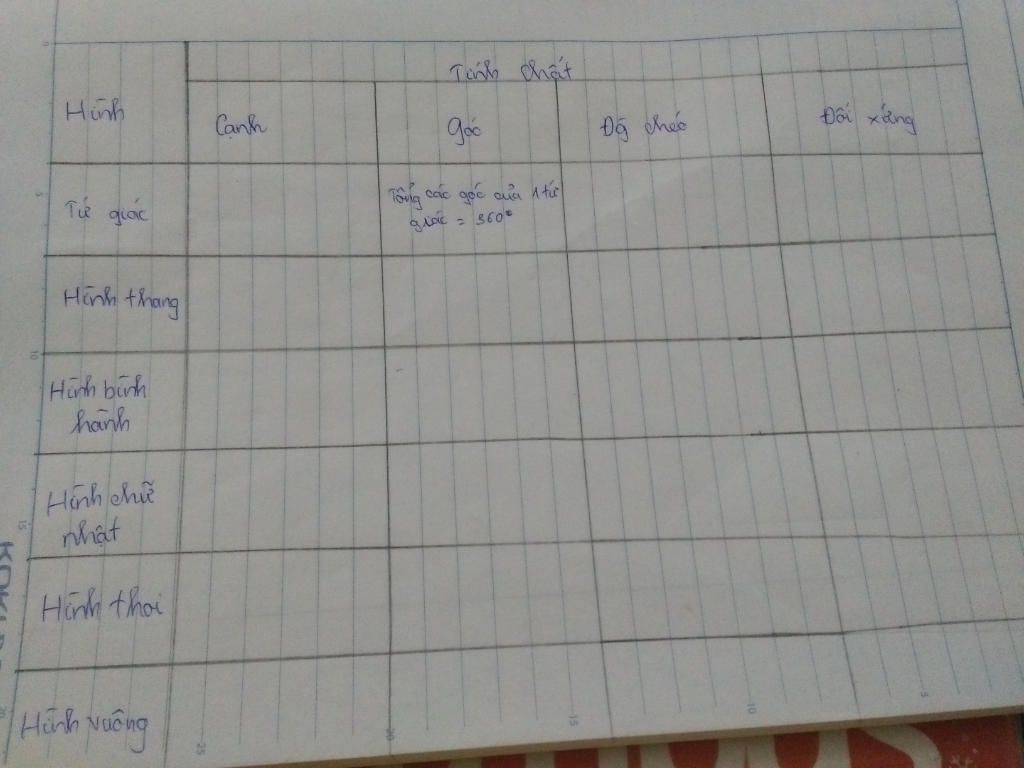 Tính chất
Hình
Cạnh
Góc
Đg chéo
Đối xứng
Tứ giác
Tổng các góc của 1 tứ
giác = 360°
Hình thang
Hình bình
hành
Hình chữ
nhật
Hình thoi
Hình vuông
5
10
15
20
25
20
15
10
5